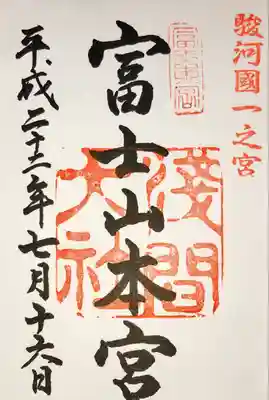 駿河國一之宮
富士山本宮
淺間大社
平成二十二年七月十六日